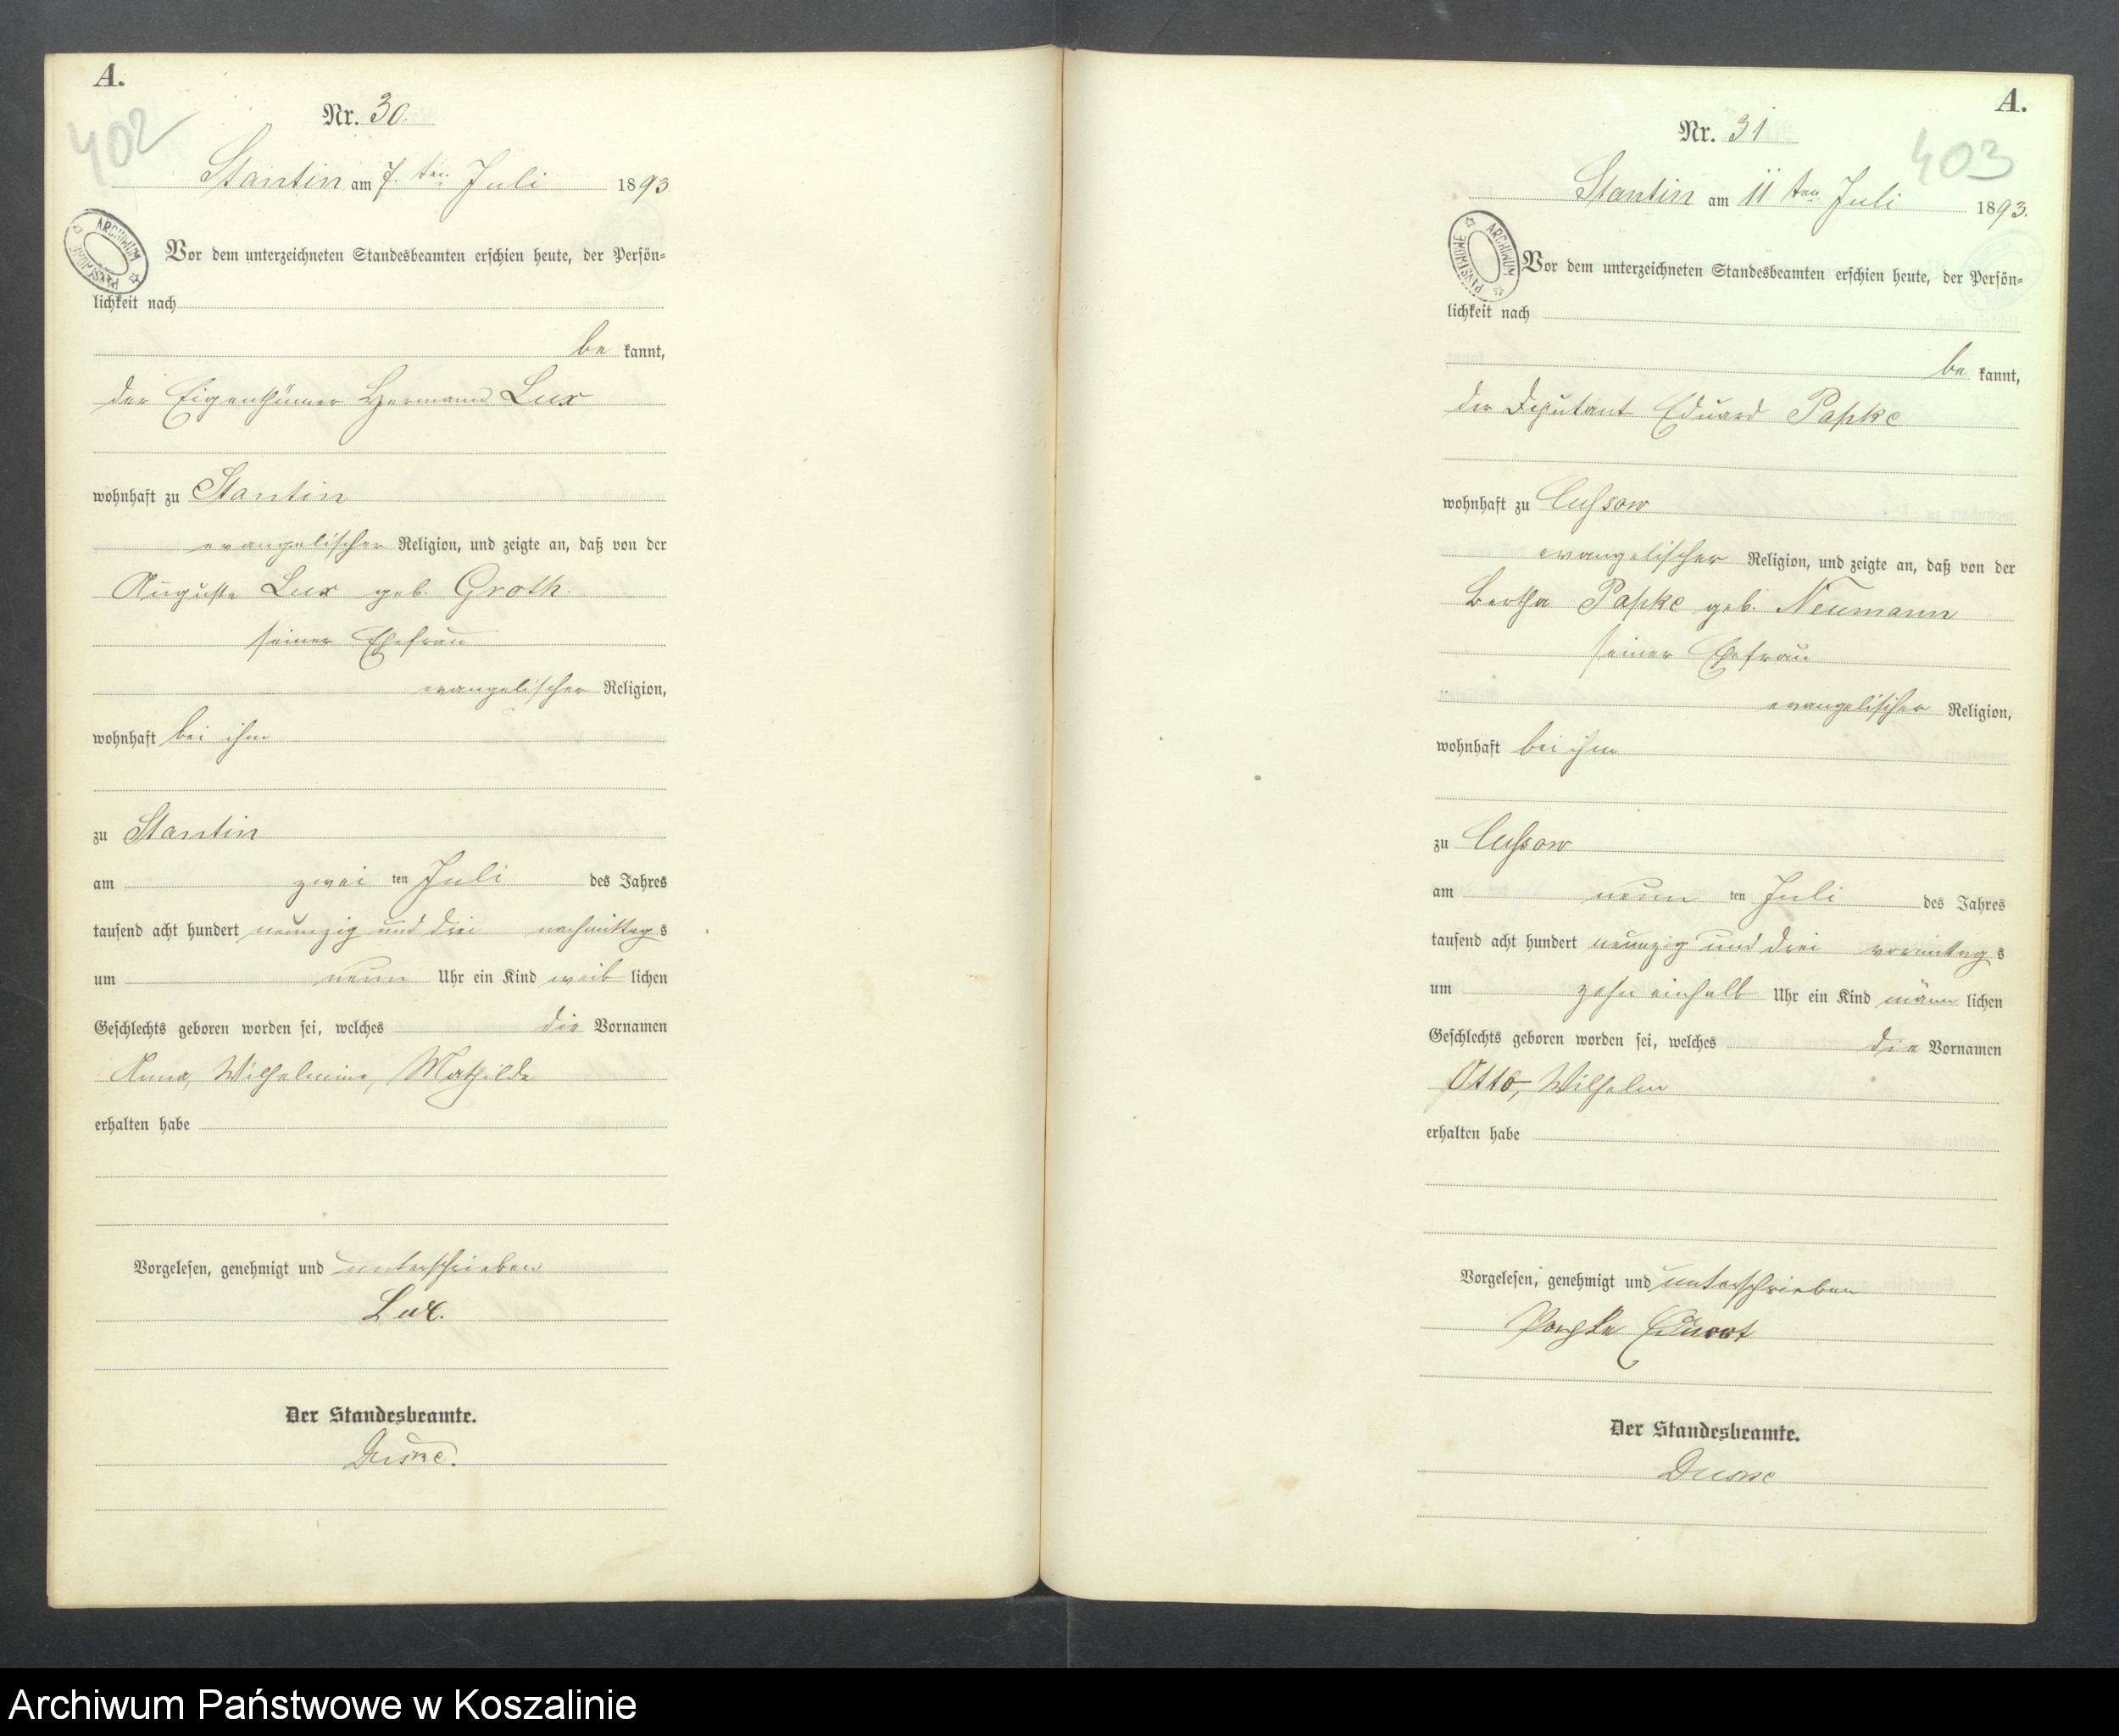 A.
402
Nr. 30.
Stantin am 7. ten Juli 1893
ARCHIWUM PAŃSTWOWE
Vor dem unterzeichneten Standesbeamten erschien heute, der Persön=
lichkeit nach
be kannt,
der Eigenthümer Hermann Lux
wohnhaft zu Stantin
evangelischer Religion, und zeigte an, daß von der
Auguste Lux geb. Groth.
seiner Ehefrau
evangelischer Religion,
wohnhaft bei ihm
zu Stantin
am zwei ten Juli des Jahres
tausend acht hundert neunzig und drei nachmittag s
um neun Uhr ein Kind weib lichen
Geschlechts geboren worden sei, welches die Vornamen
Anna, Wilhelmine, Mathilde
erhalten habe
Vorgelesen, genehmigt und unterschrieben
Lux.
Der Standesbeamte.
A.
403
Nr. 31
Stantin am 11 ten Juli 1893.
ARCHIWUM PAŃSTWOWE
Vor dem unterzeichneten Standesbeamten erschien heute, der Persön=
lichkeit nach
be kannt,
der Deputant Eduard Papke
wohnhaft zu Cussow
evangelischer Religion, und zeigte an, daß von der
Bertha Papke geb. Neumann
seiner Ehefrau
evangelischer Religion,
wohnhaft bei ihm
zu Cussow
am neun ten Juli des Jahres
tausend acht hundert neunzig und drei vormittag s
um zehn einhalb Uhr ein Kind männ lichen
Geschlechts geboren worden sei, welches die Vornamen
Otto, Wilhelm
erhalten habe
Vorgelesen, genehmigt und unterschrieben
Der Standesbeamte.
Archiwum Państwowe w Koszalinie